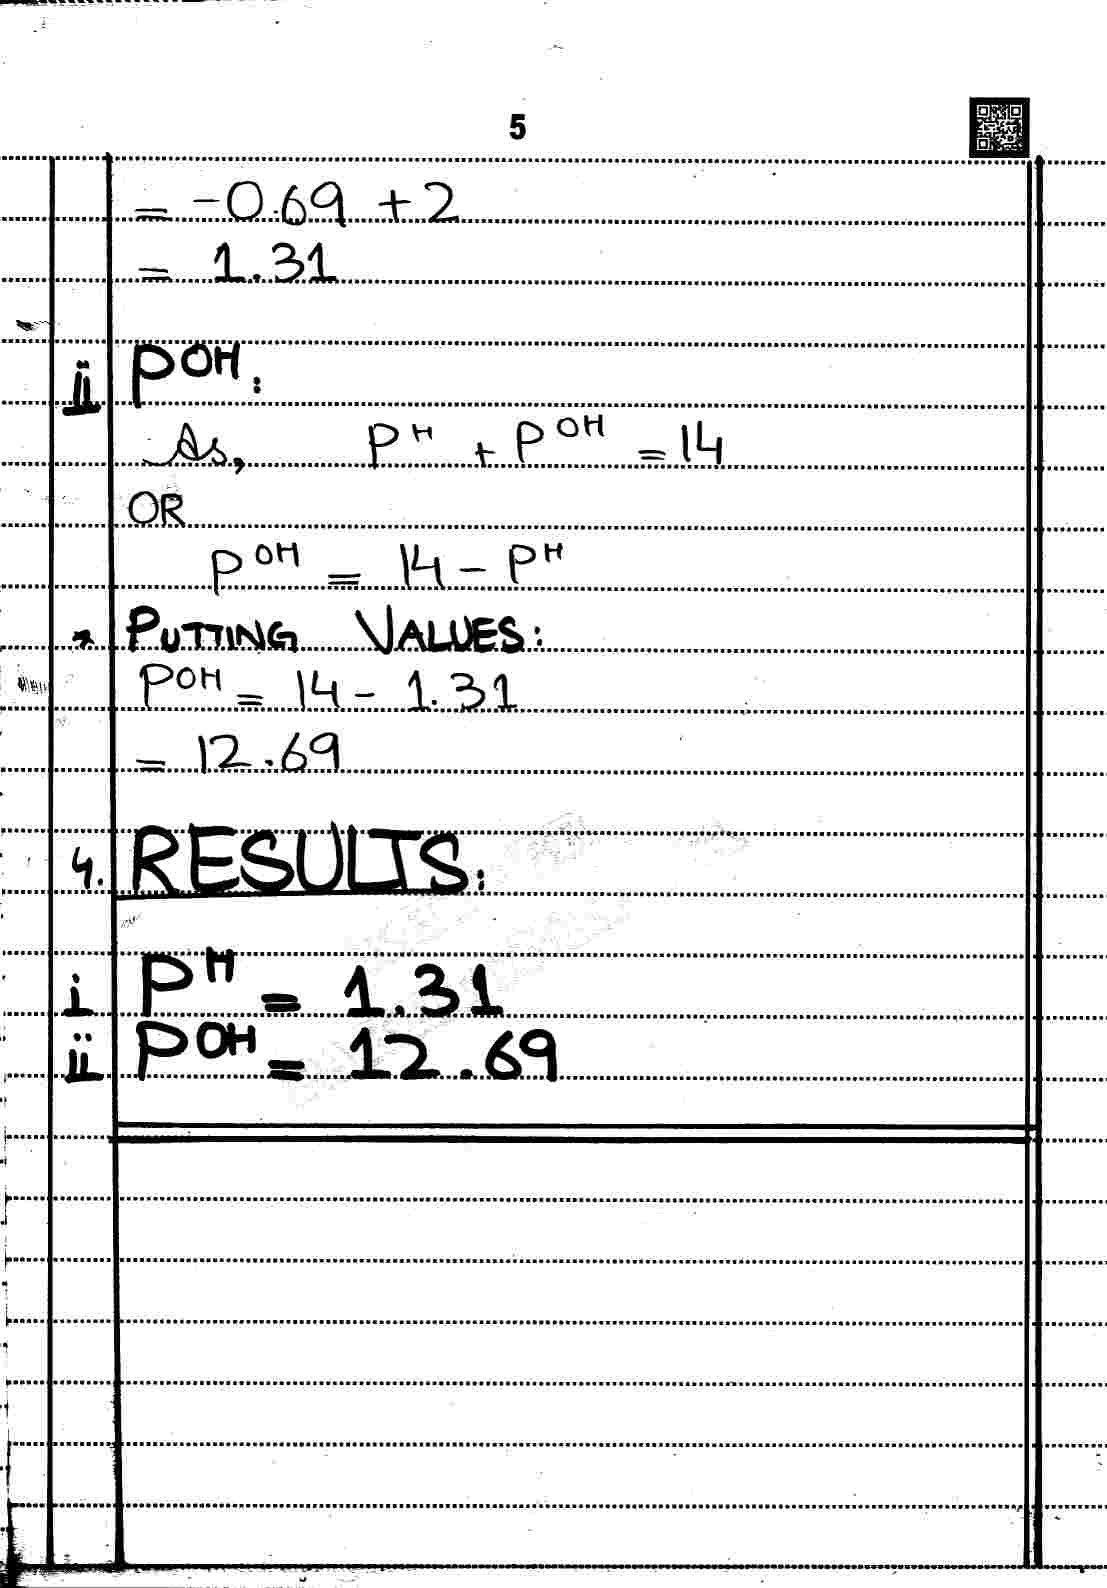 5
= -0.69 + 2
= 1.31
ii POH:
As, PH + POH = 14
OR
POH = 14 - PH
* PUTTING VALUES:
POH = 14 - 1.31
= 12.69
4. RESULTS:
i PH = 1.31
ii POH = 12.69